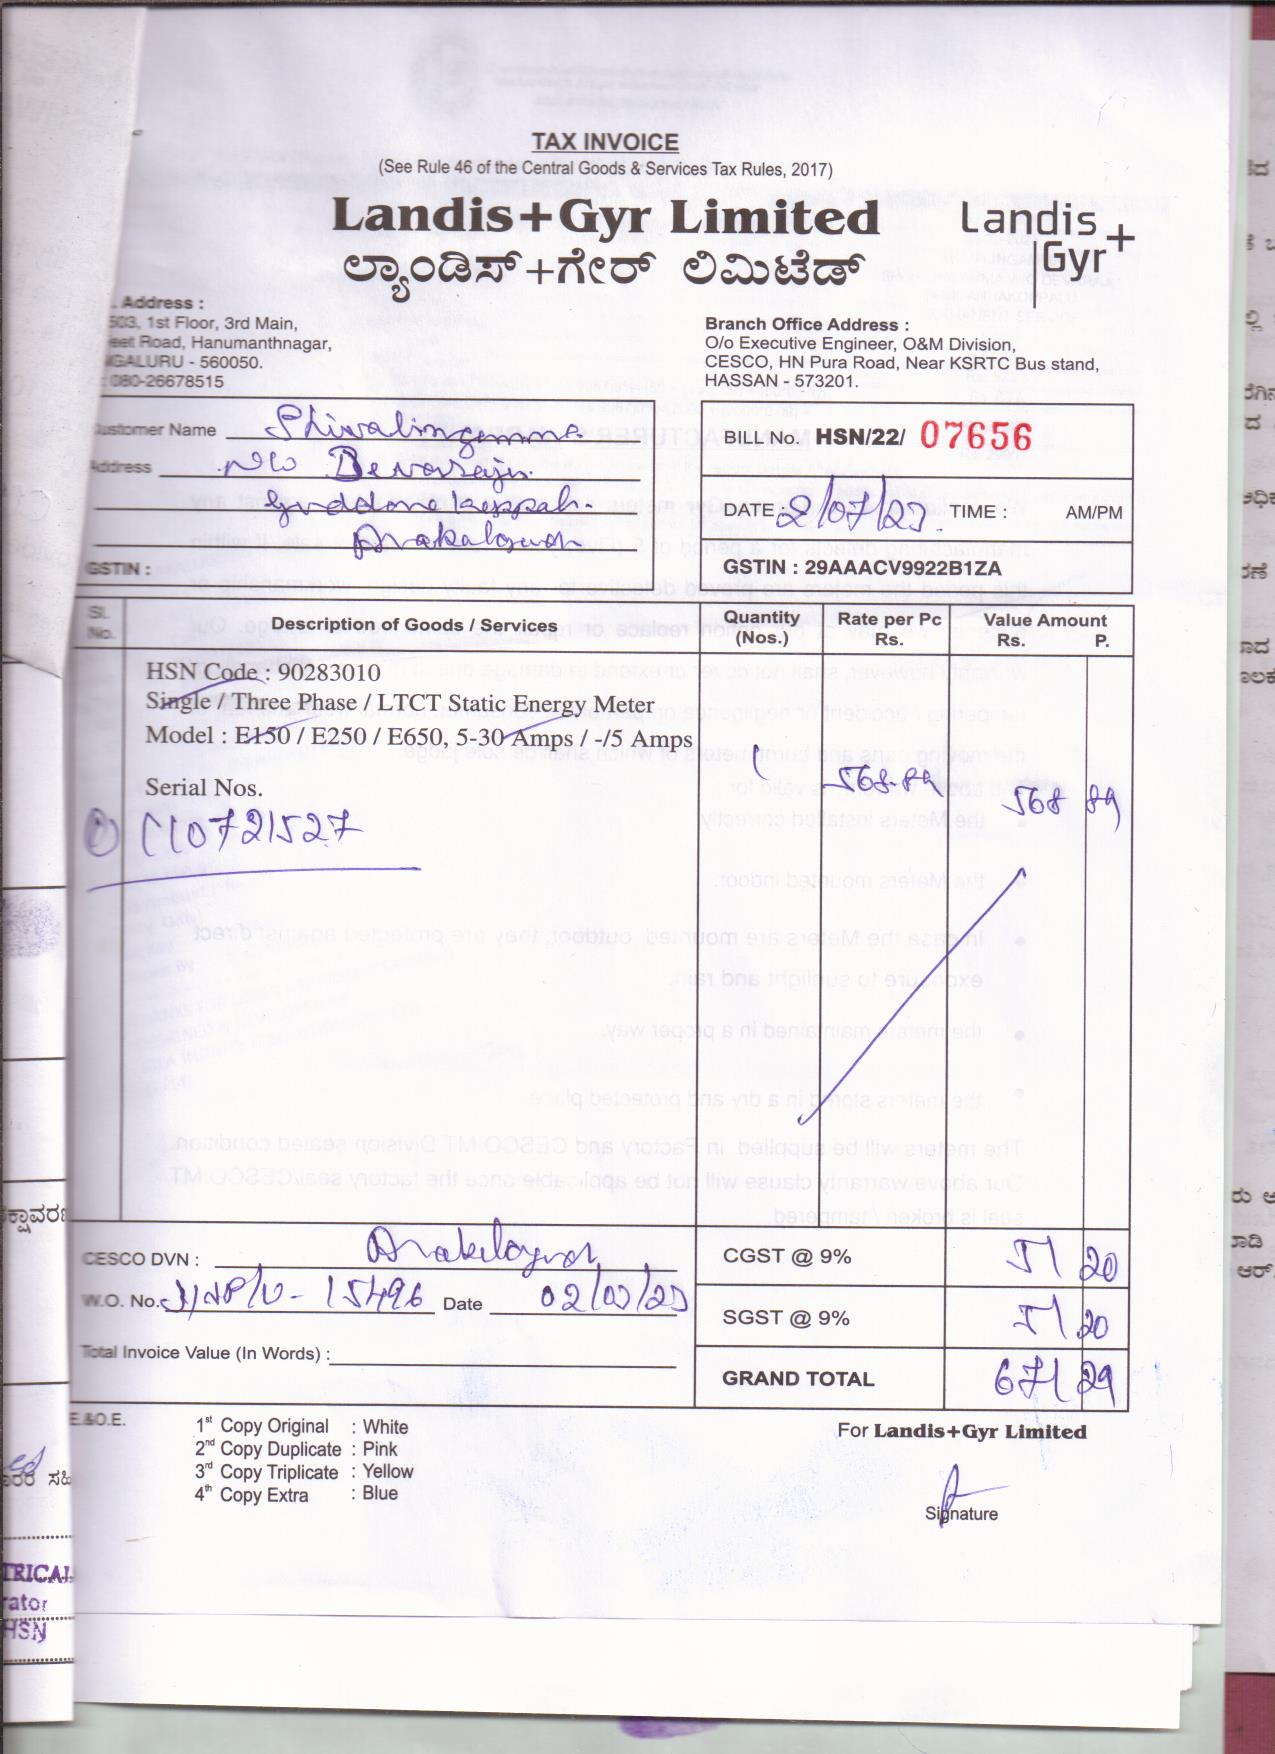 TAX INVOICE
(See Rule 46 of the Central Goods & Services Tax Rules, 2017)
Landis+Gyr Limited
Landis+Gyr
ಲ್ಯಾಂಡಿಸ್+ಗೇರ್ ಲಿಮಿಟೆಡ್
Address :
503, 1st Floor, 3rd Main,
Road, Hanumanthnagar,
- 560050.
080-26678515
Branch Office Address :
O/o Executive Engineer, O&M Division,
CESCO, HN Pura Road, Near KSRTC Bus stand,
HASSAN - 573201.
Customer Name
Address
GSTIN :
BILL No. HSN/22/ 07656
DATE 2/07/23 TIME : AM/PM
GSTIN : 29AAACV9922B1ZA
Sl. No. Description of Goods / Services Quantity (Nos.) Rate per Pc Rs. Value Amount Rs. P.
HSN Code : 90283010
Single / Three Phase / LTCT Static Energy Meter
Model : E150 / E250 / E650, 5-30 Amps / -/5 Amps
1 568-89 568 89
Serial Nos.
CESCO DVN :
CGST @ 9% 51 20
W.O. No. 15496 Date
SGST @ 9% 51 20
Total Invoice Value (In Words) :
GRAND TOTAL 671 29
E.&O.E.
1st Copy Original : White
2nd Copy Duplicate : Pink
3rd Copy Triplicate : Yellow
4th Copy Extra : Blue
For Landis+Gyr Limited
Signature
HSN